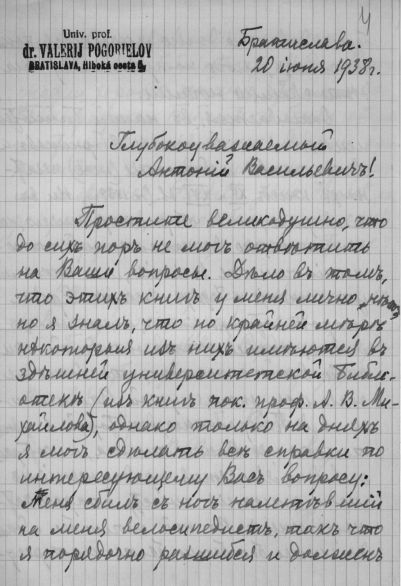 4
Univ. prof.
dr. VALERIJ POGORIELOV
BRATISLAVA, Hlboká cesta
Братислава.
20 іюня 1938 г.
Глубокоуважаемый
Антоній Васильевичъ!
Простите великодушно, что
до сихъ поръ не могъ отвѣтить
на Ваши вопросы. Дѣло въ томъ,
что этихъ книгъ у меня лично нѣтъ,
но я зналъ, что по крайней мѣрѣ
нѣкоторыя изъ нихъ имѣются въ
здѣшней университетской библі-
отекѣ (изъ книгъ пок. проф. А. В. Ми-
хайлова), однако только на дняхъ
я могъ сдѣлать всѣ справки по
интересующему Васъ вопросу:
меня сбилъ съ ногъ налетѣвшій
на меня велосипедистъ, такъ что
я порядочно расшибся и долженъ